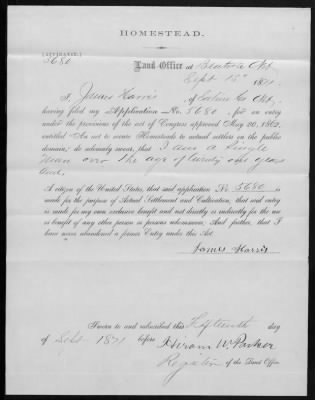 HOMESTEAD.
(AFFIDAVIT.)
5680 Land Office at Beatrice Neb.
Sept 15th 1871.
I, James Harris of Saline Co. Neb.,
having filed my Application No. 5680, for an entry
under the provisions of the act of Congress approved May 20, 1862,
entitled An act to secure Homesteads to actual settlers on the public
domain; do solemnly swear, that I am a Single
man over the age of twenty one years
and
A citizen of the United States, that said application No 5680 is
made for the purpose of Actual Settlement and Cultivation, that said entry
is made for my own exclusive benefit and not directly or indirectly for the use
or benefit of any other person or persons whomsoever, And further, that I
have never abandoned a former Entry under this Act.
James Harris
Sworn to and subscribed this Fifteenth day
of Sept. 1871 before Hiram W. Parker
Register of the Land Office.